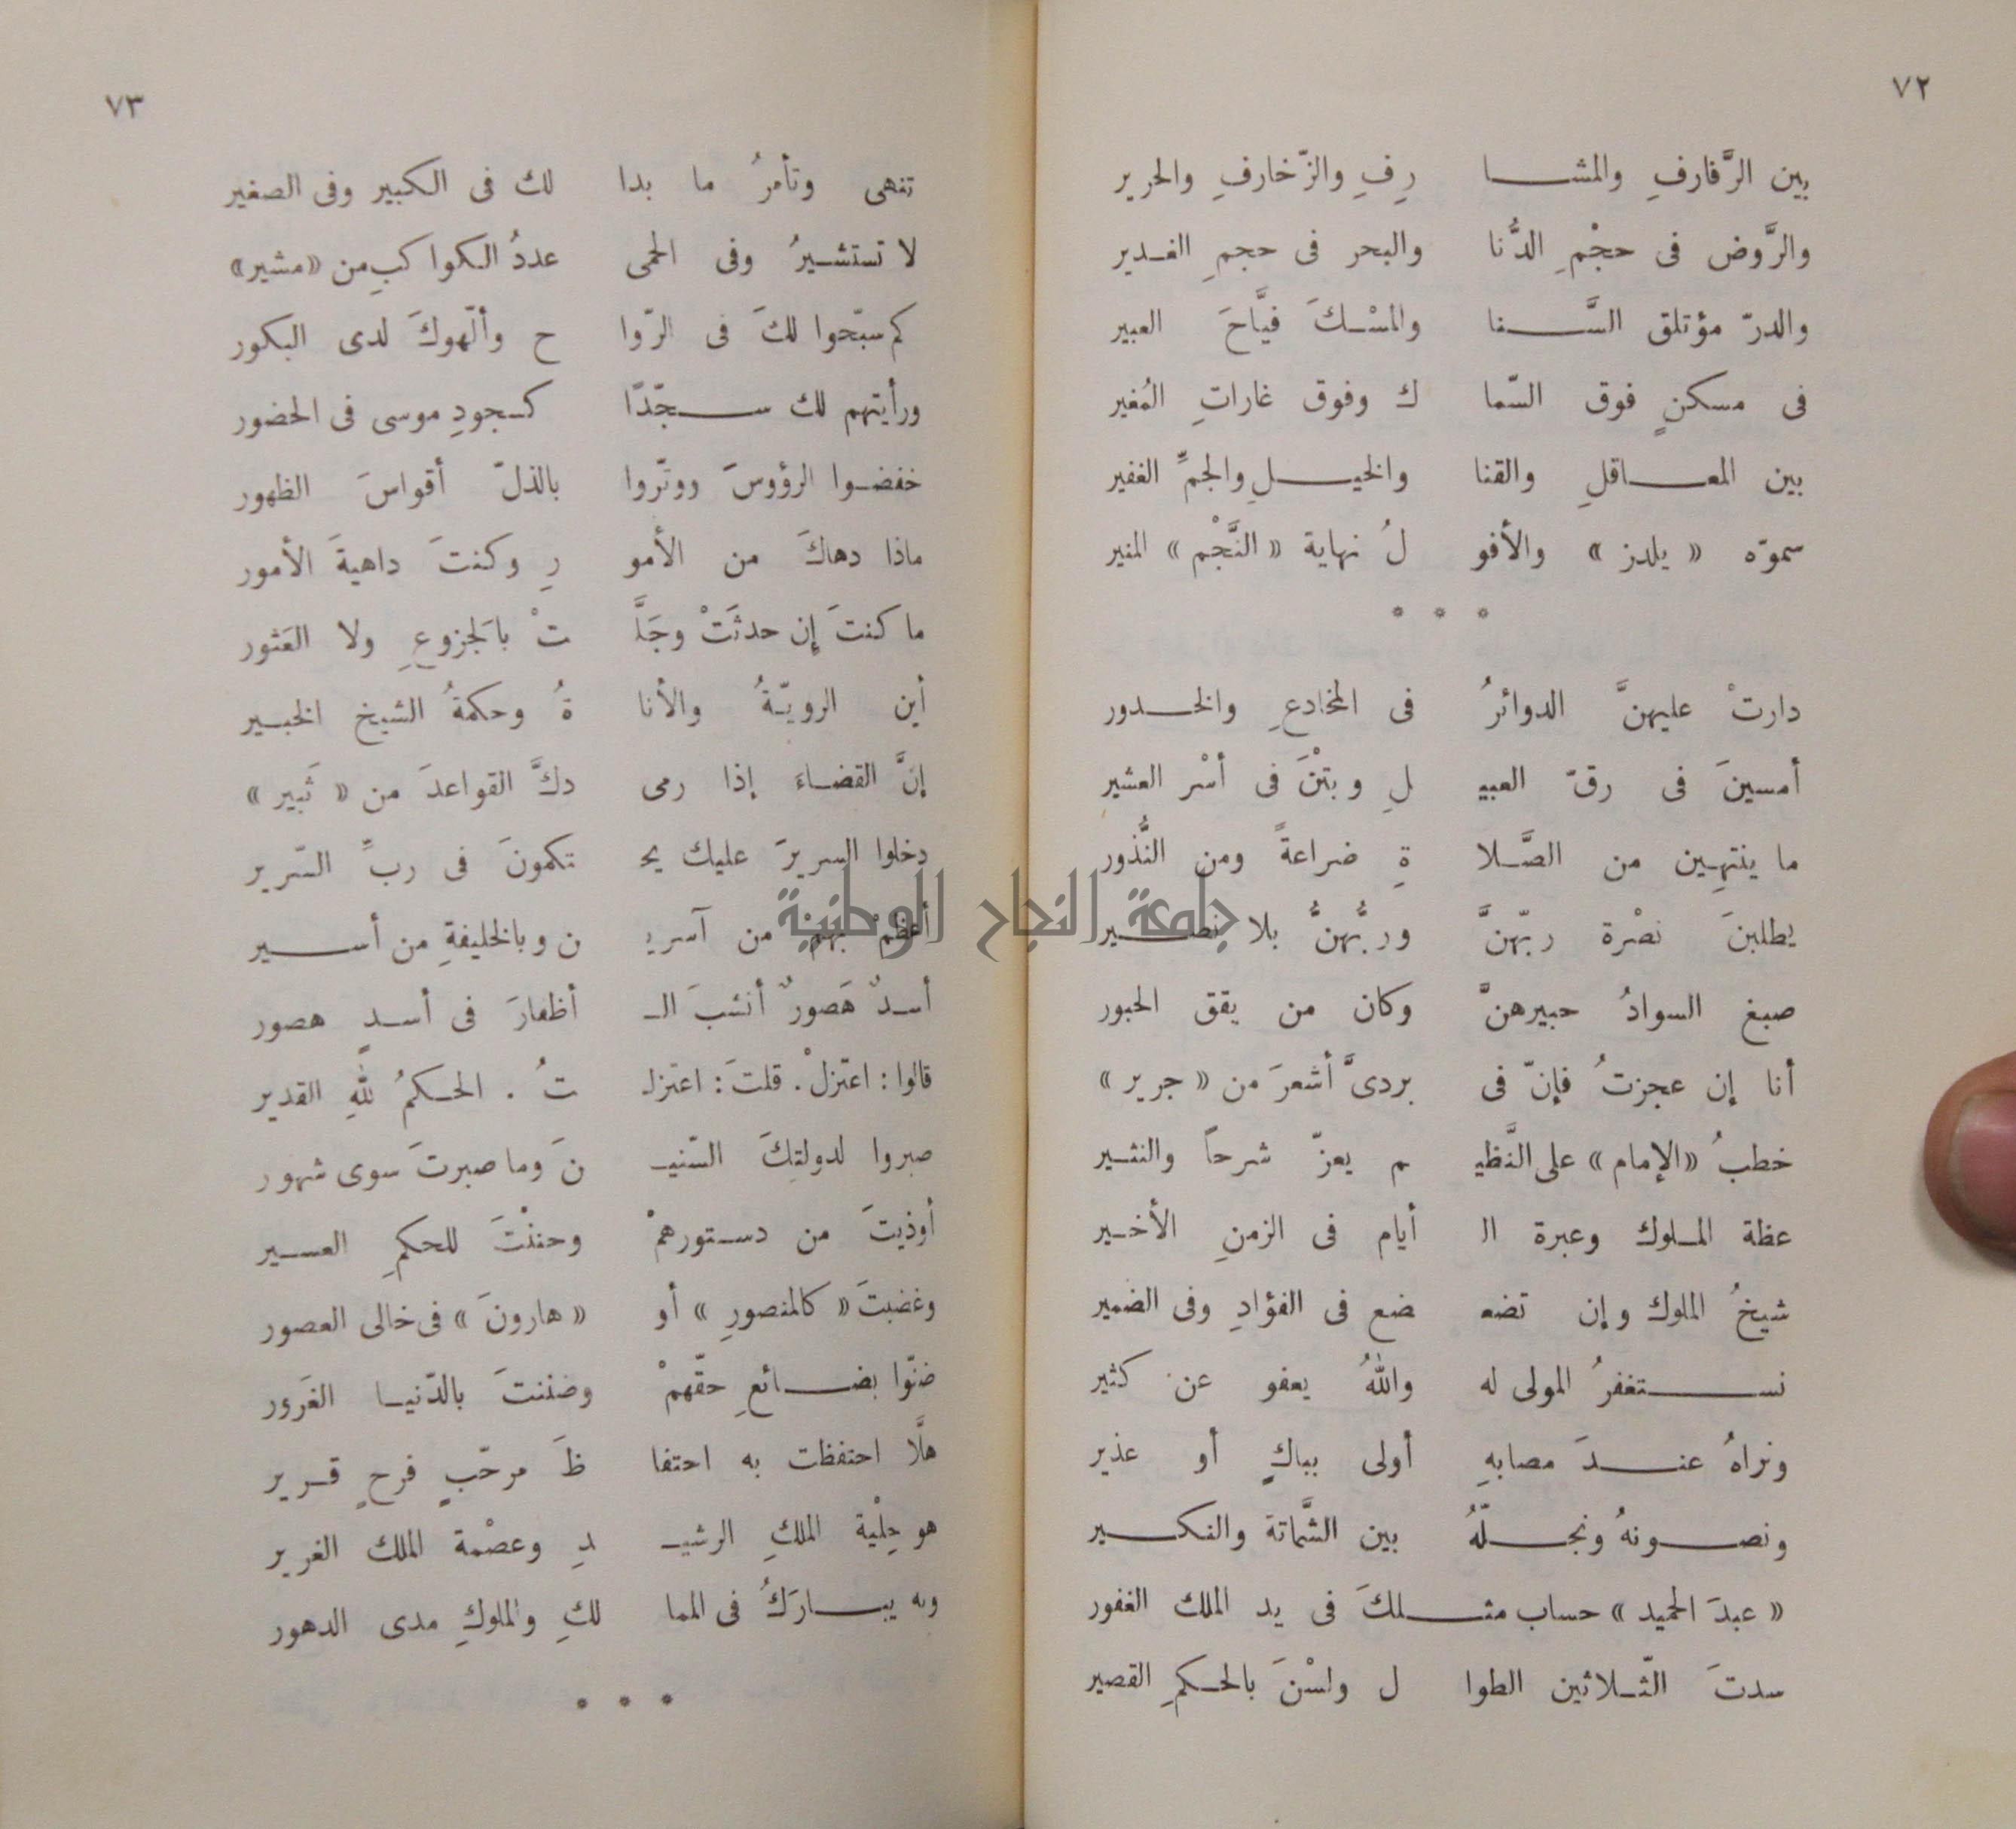 ٧٢
بين الرَّفارفِ والمشا رِفِ والزّخارفِ والحرير
والرَّوض فى حجْمِ الدُّنا والبحر فى حجمِ الغدير
والدرّ مؤتلق السَّنا والمسْكَ فيَّاحَ العبير
فى مسكنٍ فوق السّما ك وفوق غاراتِ المُغير
بين المعاقلِ والقنا والخيلِ والجمِّ الغفير
سموّه « يلدز » والأفو لُ نهاية « النَّجْم » المنير
* * *
دارتْ عليهنَّ الدوائرُ فى المخادعِ والخدور
أمسينَ فى رقّ العبيـ لِ وبتْنَ فى أسْر العشير
ما ينتهِين من الصَّلا ةِ ضراعةً ومن النُّذور
يطلبنَ نصْرة ربّهنَّ وربُّهنُّ بلا نصير
صبغ السوادُ حبيرهنَّ وكان من يقق الحبور
أنا إن عجزتُ فإنّ فى بردىَّ أشعرَ من « جرير »
خطبُ «الإمام» على النَّظيـ م يعزّ شرحاً والنثير
عظة الملوك وعبرة الـ أيام فى الزمنِ الأخير
شيخُ الملوك وإن تضعـ ضع فى الفؤادِ وفى الضمير
نستغفرُ المولى له واللهُ يعفو عن كثير
ونراهُ عندَ مصابهِ أولى بباكٍ أو عذير
ونصونهُ ونجلّهُ بين الشَّماتة والنكير
« عبدَ الحميد » حساب مثلكَ فى يد الملك الغفور
سدتَ الثّلاثين الطوا ل ولسْنَ بالحكمِ القصير
٧٣
تنهى وتأمرُ ما بدا لك فى الكبير وفى الصغير
لا تستشيرُ وفى الحمى عددُ الكواكبِ من «مشير»
كم سبّحوا لكَ فى الرّوا ح وألّهوكَ لدى البكور
ورأيتهم لك سجّدًا كسجودِ موسى فى الحضور
خفضوا الرؤوسَ ووتّروا بالذلّ أقواسَ الظهور
ماذا دهاكَ من الأمو رِ وكنتَ داهيةَ الأمور
ما كنتَ إن حدثَتْ وجَلَّ تْ بالجزوعِ ولا العَثور
أين الرويّةُ والأنا ةُ وحكمةُ الشيخ الخبير
إنَّ القضاءَ إذا رمى دكَّ القواعدَ من « ثَبير »
دخلوا السريرَ عليك يحـ تكمونَ فى ربِّ السّرير
أعْظمْ بهمْ من آسريـ ن وبالخليفةِ من أسير
أسدٌ هَصورٌ أنشبَ الـ أظفارَ فى أسدٍ هصور
قالوا : اعتزلْ . قلتَ : اعتزلـ تُ . الحكمُ للهِ القدير
صبروا لدولتِكَ السّنيـ نَ وما صبرتَ سوى شهور
أوذيتَ من دستورهمْ وحننْتَ للحكمِ العسير
وغضبتَ « كالمنصورِ » أو « هارونَ » فى خالى العصور
ضنّوا بضائعِ حقّهمْ وضننتَ بالدّنيا الغَرور
هلَّا احتفظت به احتفا ظَ مرحّبٍ فرحٍ قرير
هو حِلْية الملكِ الرشيـ دِ وعصْمة الملك الغرير
وبه يبارَكُ فى المما لكِ والملوكِ مدى الدهور
* * *
جامعة النجاح الوطنية